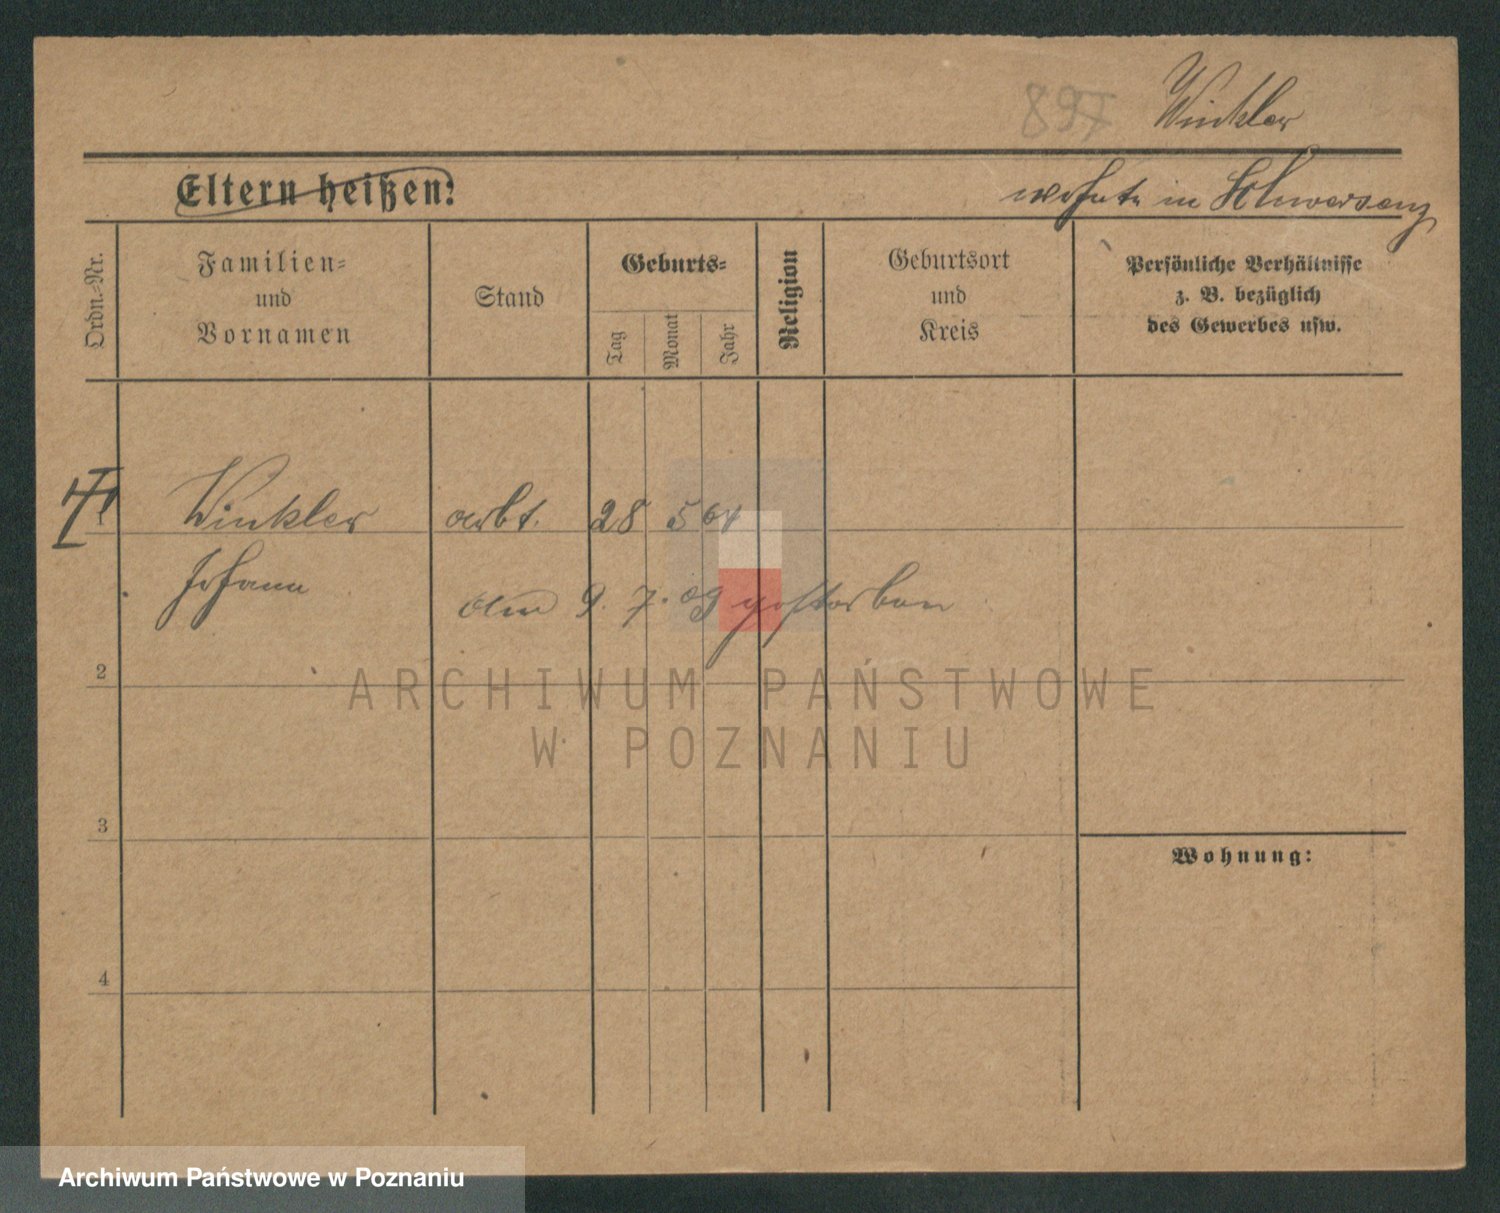 897 Winkler
Eltern heißen:
wohnte in Schwersenz
Ordn.-Nr.
Familien-
und
Vornamen
Stand
Geburts-
Tag
Monat
Jahr
Religion
Geburtsort
und
Kreis
Persönliche Verhältnisse
z. B. bezüglich
des Gewerbes usw.
1 Winkler arbt. 28 5 64
Johann
am 9. 7. 09 gestorben
2
ARCHIWUM PAŃSTWOWE
W POZNANIU
3
Wohnung:
4
Archiwum Państwowe w Poznaniu